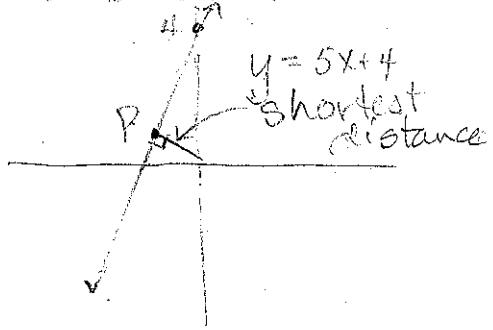 4
y = 5x+4
P
shortest
distance